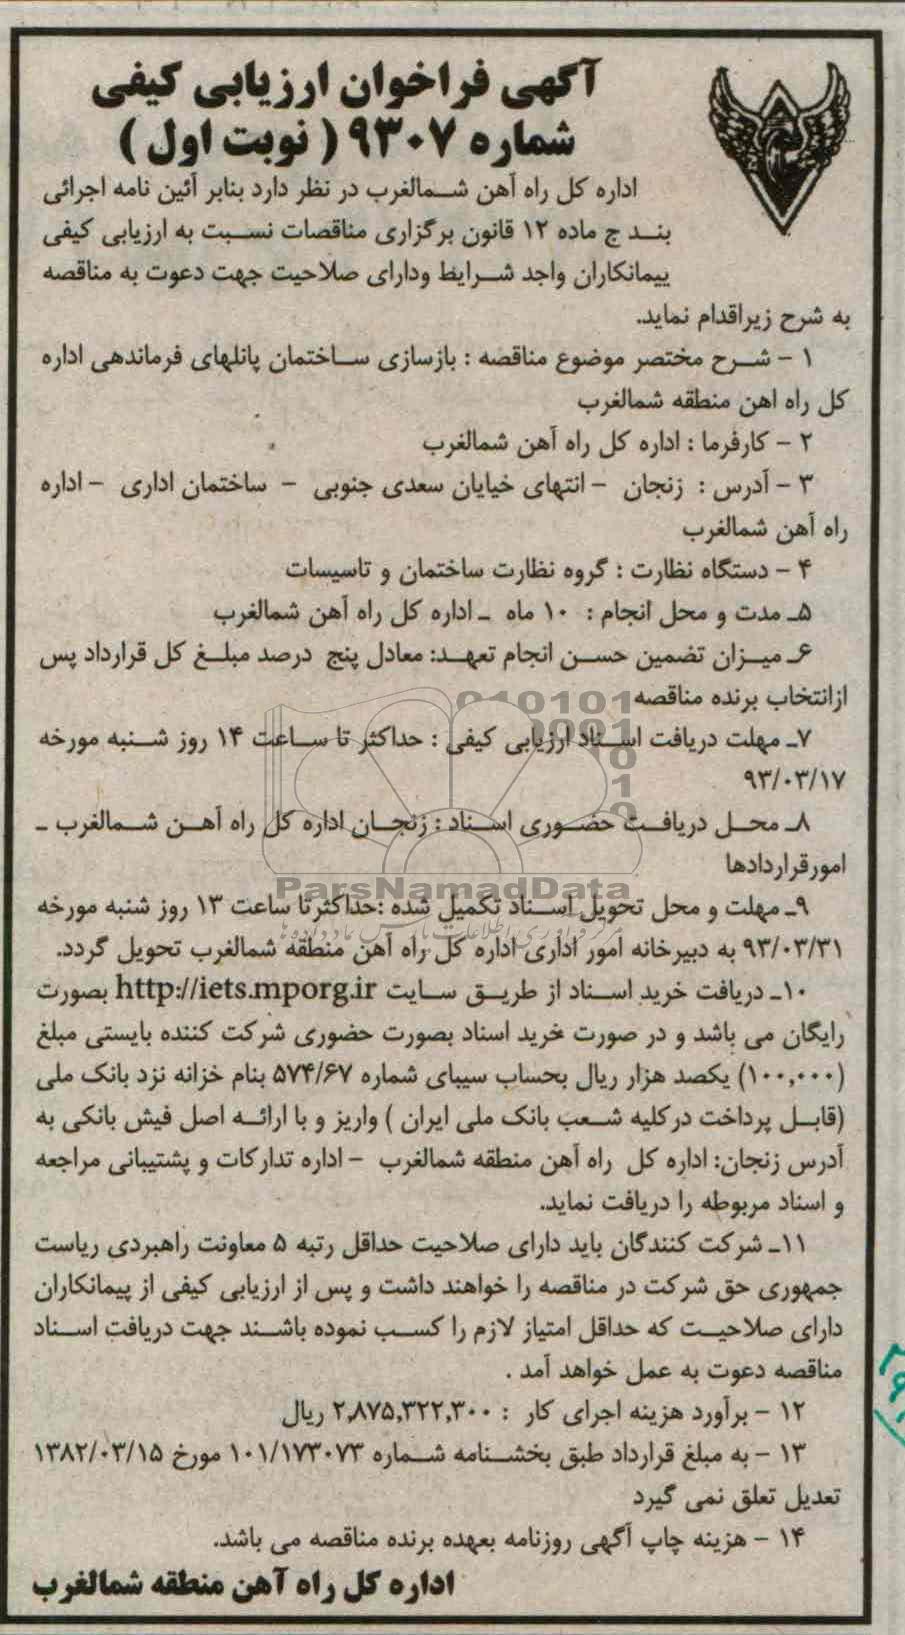 آگهی فراخوان ارزیابی کیفی
شماره ۹۳۰۷ ( نوبت اول )
اداره کل راه آهن شمالغرب در نظر دارد بنابر آئین نامه اجرائی
بند ج ماده ۱۲ قانون برگزاری مناقصات نسبت به ارزیابی کیفی
پیمانکاران واجد شرایط ودارای صلاحیت جهت دعوت به مناقصه
به شرح زیراقدام نماید.
۱ - شرح مختصر موضوع مناقصه : بازسازی ساختمان پانلهای فرماندهی اداره
کل راه اهن منطقه شمالغرب
۲ - کارفرما : اداره کل راه آهن شمالغرب
۳ - آدرس : زنجان - انتهای خیابان سعدی جنوبی - ساختمان اداری - اداره
راه آهن شمالغرب
۴ - دستگاه نظارت : گروه نظارت ساختمان و تاسیسات
۵ـ مدت و محل انجام : ۱۰ ماه ـ اداره کل راه آهن شمالغرب
۶ـ میزان تضمین حسن انجام تعهد: معادل پنج درصد مبلغ کل قرارداد پس
ازانتخاب برنده مناقصه
۷ـ مهلت دریافت اسناد ارزیابی کیفی : حداکثر تا ساعت ۱۴ روز شنبه مورخه
۹۳/۰۳/۱۷
۸ـ محل دریافت حضوری اسناد : زنجان اداره کل راه آهن شمالغرب ـ
امورقراردادها
ParsNamadData
۹ـ مهلت و محل تحویل اسناد تکمیل شده :حداکثرتا ساعت ۱۳ روز شنبه مورخه
۹۳/۰۳/۳۱ به دبیرخانه امور اداری اداره کل راه آهن منطقه شمالغرب تحویل گردد.
۱۰ـ دریافت خرید اسناد از طریق سایت http://iets.mporg.ir بصورت
رایگان می باشد و در صورت خرید اسناد بصورت حضوری شرکت کننده بایستی مبلغ
(۱۰۰,۰۰۰) یکصد هزار ریال بحساب سیبای شماره ۵۷۴/۶۷ بنام خزانه نزد بانک ملی
(قابل پرداخت درکلیه شعب بانک ملی ایران ) واریز و با ارائه اصل فیش بانکی به
آدرس زنجان: اداره کل راه آهن منطقه شمالغرب - اداره تدارکات و پشتیبانی مراجعه
و اسناد مربوطه را دریافت نماید.
۱۱ـ شرکت کنندگان باید دارای صلاحیت حداقل رتبه ۵ معاونت راهبردی ریاست
جمهوری حق شرکت در مناقصه را خواهند داشت و پس از ارزیابی کیفی از پیمانکاران
دارای صلاحیت که حداقل امتیاز لازم را کسب نموده باشند جهت دریافت اسناد
مناقصه دعوت به عمل خواهد آمد .
۱۲ - برآورد هزینه اجرای کار : ۲,۸۷۵,۳۲۲,۳۰۰ ریال
۱۳ - به مبلغ قرارداد طبق بخشنامه شماره ۱۰۱/۱۷۳۰۷۳ مورخ ۱۳۸۲/۰۳/۱۵
تعدیل تعلق نمی گیرد
۱۴ - هزینه چاپ آگهی روزنامه بعهده برنده مناقصه می باشد.
اداره کل راه آهن منطقه شمالغرب